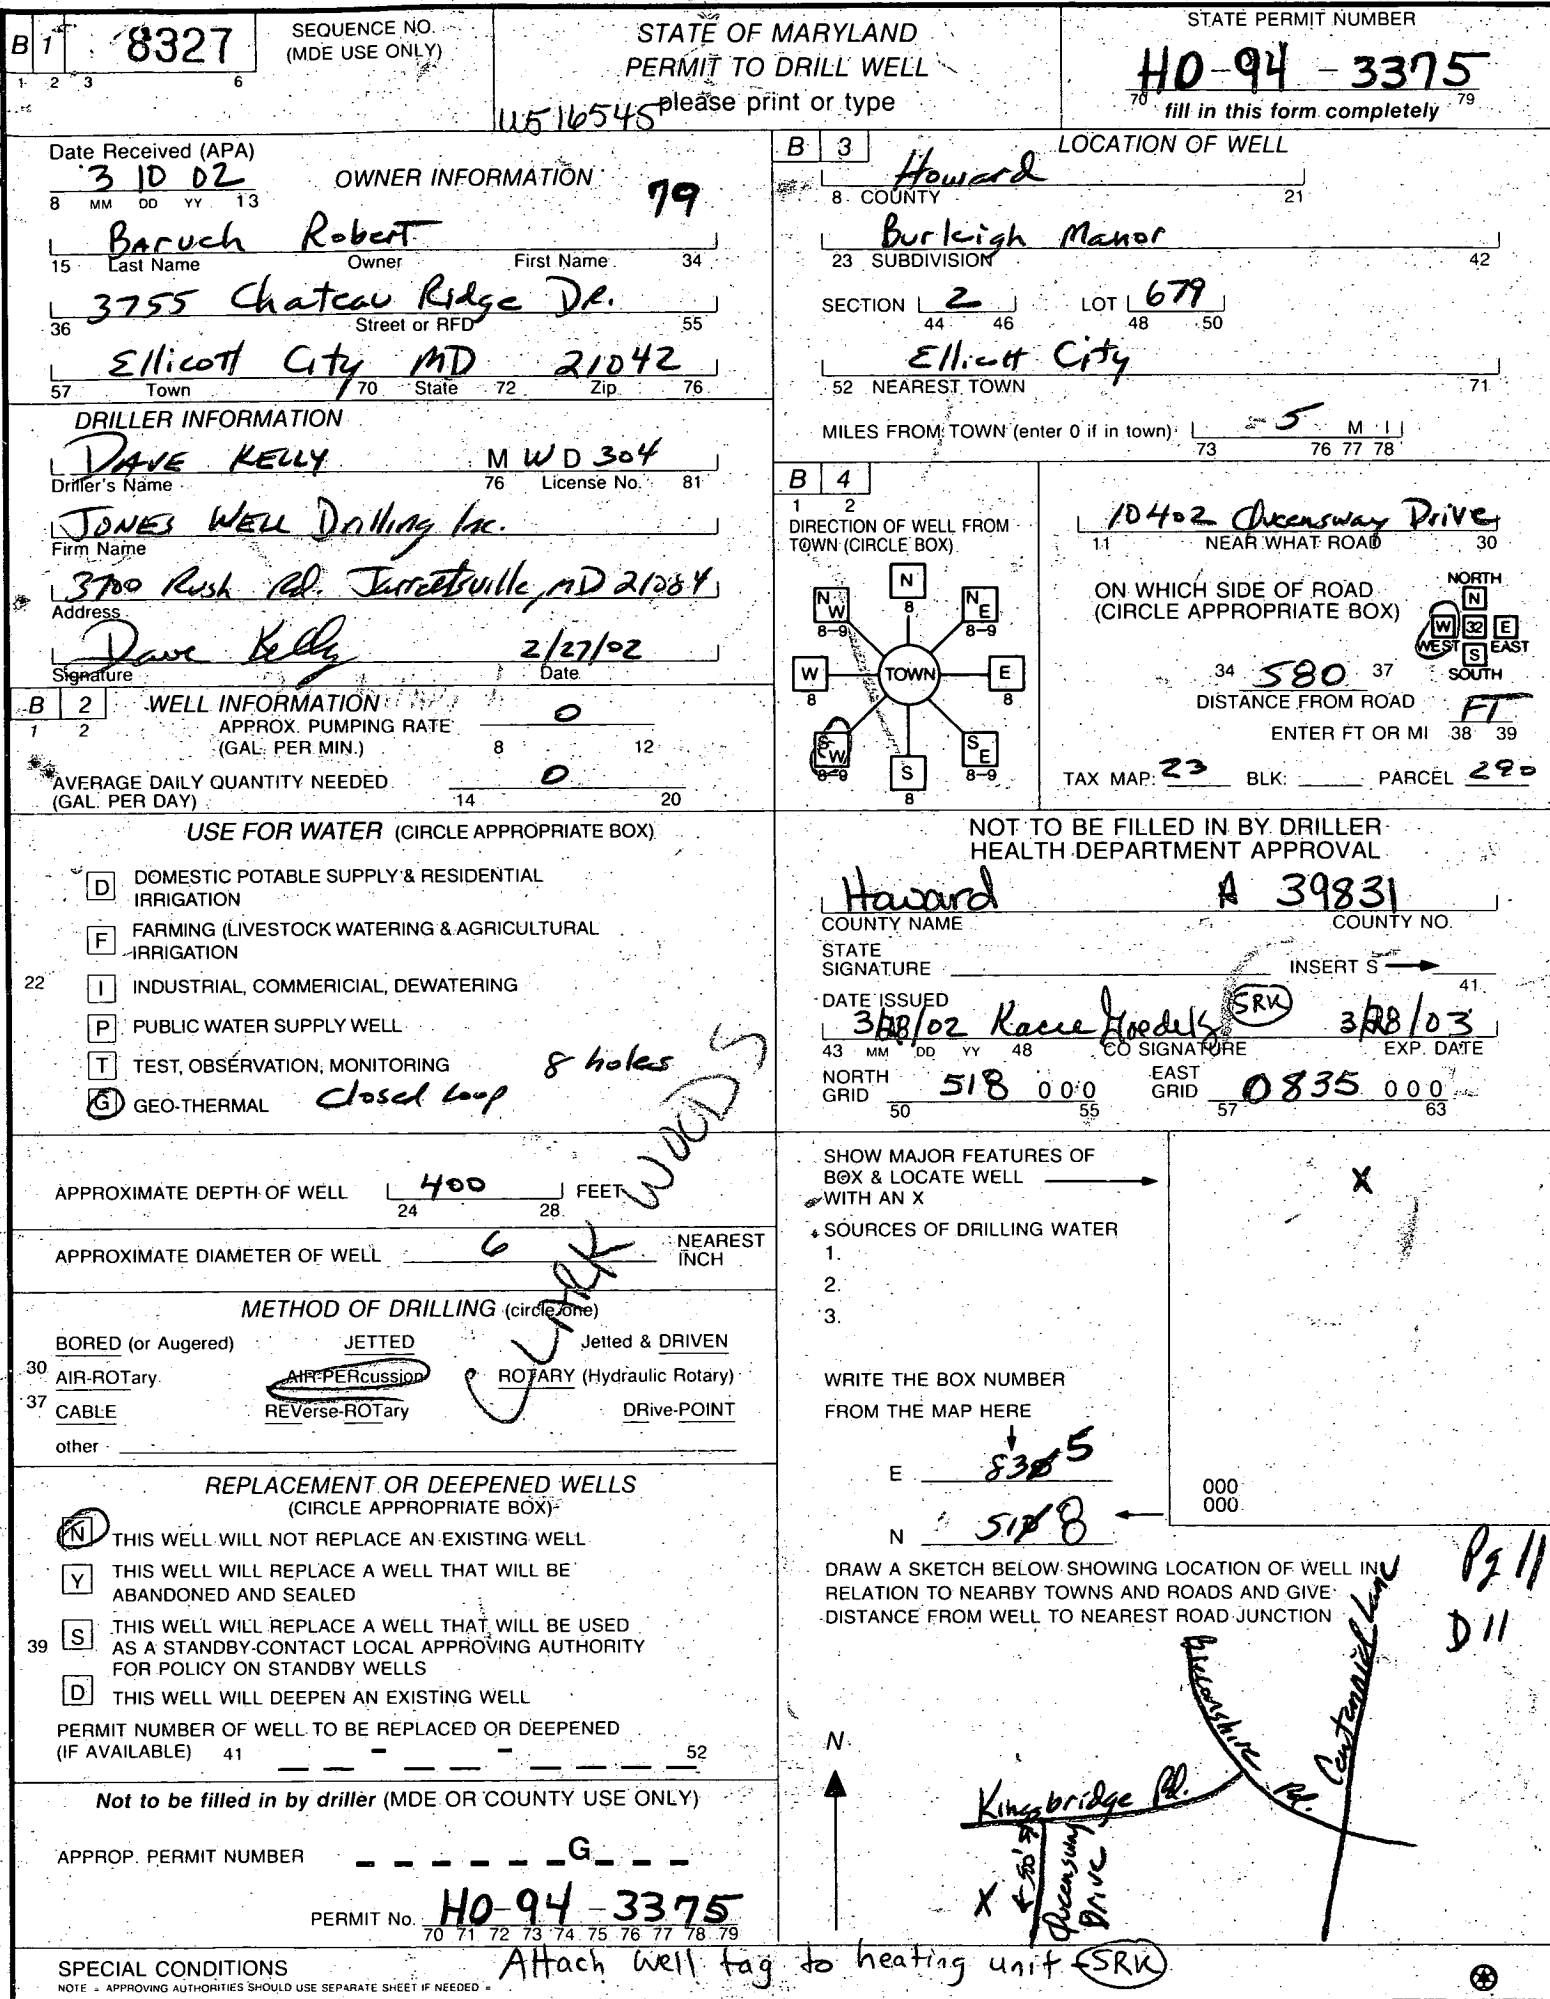 B 1 8327
1 2 3 6
SEQUENCE NO.
(MDE USE ONLY)
STATE OF MARYLAND
PERMIT TO DRILL WELL
please print or type
STATE PERMIT NUMBER
HO-94-3375
70 79
fill in this form completely
Date Received (APA)
3 10 02
8 MM DD YY 13
OWNER INFORMATION
79
Baruch Robert
15 Last Name Owner First Name 34
3755 Chateau Ridge DR.
36 Street or RFD 55
Ellicott City MD 21042
57 Town 70 State 72 Zip 76
DRILLER INFORMATION
DAVE KELLY M W D 304
Driller's Name 76 License No. 81
JONES WELL Drilling Inc.
Firm Name
3700 Rush Rd. Jarrettsville, MD 21084
Address
Dave Kelly 2/27/02
Signature Date
B 2 WELL INFORMATION
1 2
APPROX. PUMPING RATE 0
(GAL. PER MIN.) 8 12
AVERAGE DAILY QUANTITY NEEDED 0
(GAL. PER DAY) 14 20
USE FOR WATER (CIRCLE APPROPRIATE BOX)
D DOMESTIC POTABLE SUPPLY & RESIDENTIAL
IRRIGATION
F FARMING (LIVESTOCK WATERING & AGRICULTURAL
IRRIGATION
22 I INDUSTRIAL, COMMERICIAL, DEWATERING
P PUBLIC WATER SUPPLY WELL
T TEST, OBSERVATION, MONITORING 8 holes
G GEO-THERMAL Closed Loop
CLARK WOODS
APPROXIMATE DEPTH OF WELL 400 FEET
24 28
APPROXIMATE DIAMETER OF WELL 6 NEAREST
INCH
METHOD OF DRILLING (circle one)
BORED (or Augered) JETTED Jetted & DRIVEN
30 AIR-ROTary AIR-PERcussion ROTARY (Hydraulic Rotary)
37 CABLE REVerse-ROTary DRive-POINT
other
REPLACEMENT OR DEEPENED WELLS
(CIRCLE APPROPRIATE BOX)
N THIS WELL WILL NOT REPLACE AN EXISTING WELL
Y THIS WELL WILL REPLACE A WELL THAT WILL BE
ABANDONED AND SEALED
39 S THIS WELL WILL REPLACE A WELL THAT WILL BE USED
AS A STANDBY-CONTACT LOCAL APPROVING AUTHORITY
FOR POLICY ON STANDBY WELLS
D THIS WELL WILL DEEPEN AN EXISTING WELL
PERMIT NUMBER OF WELL TO BE REPLACED OR DEEPENED
(IF AVAILABLE) 41 - - 52
Not to be filled in by driller (MDE OR COUNTY USE ONLY)
APPROP. PERMIT NUMBER G
PERMIT No. HO-94-3375
70 71 72 73 74 75 76 77 78 79
B 3 LOCATION OF WELL
Howard
8 COUNTY 21
Burleigh Manor
23 SUBDIVISION 42
SECTION 2 LOT 679
44 46 48 50
Ellicott City
52 NEAREST TOWN 71
MILES FROM TOWN (enter 0 if in town) 5 M I
73 76 77 78
B 4
1 2
DIRECTION OF WELL FROM
TOWN (CIRCLE BOX)
N
8
NW NE
8-9 8-9
W TOWN E
8 8
SW SE
8-9 8-9
S
8
10402 Queensway Drive
11 NEAR WHAT ROAD 30
ON WHICH SIDE OF ROAD
(CIRCLE APPROPRIATE BOX)
NORTH
N
W 32 E
WEST S EAST
SOUTH
34 580 37
DISTANCE FROM ROAD FT
ENTER FT OR MI 38 39
TAX MAP: 23 BLK: PARCEL 290
NOT TO BE FILLED IN BY DRILLER
HEALTH DEPARTMENT APPROVAL
Howard A 39831
COUNTY NAME COUNTY NO.
STATE
SIGNATURE INSERT S
41
DATE ISSUED
3/28/02 SRK 3/28/03
43 MM DD YY 48 CO SIGNATURE EXP. DATE
NORTH GRID 518 000 EAST GRID 0835 000
50 55 57 63
SHOW MAJOR FEATURES OF
BOX & LOCATE WELL
WITH AN X
X
SOURCES OF DRILLING WATER
1.
2.
3.
WRITE THE BOX NUMBER
FROM THE MAP HERE
E 835
N 518
000
000
DRAW A SKETCH BELOW SHOWING LOCATION OF WELL IN
RELATION TO NEARBY TOWNS AND ROADS AND GIVE
DISTANCE FROM WELL TO NEAREST ROAD JUNCTION
Pg 11
D 11
N
Kingsbridge Rd.
Centennial Lane
Queensway Drive
X
SPECIAL CONDITIONS Attach well tag to heating unit - SRK
NOTE - APPROVING AUTHORITIES SHOULD USE SEPARATE SHEET IF NEEDED